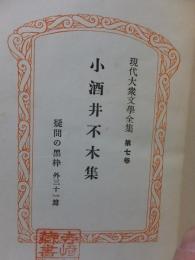 現代大衆文學全集 第七巻
小酒井不木集
疑問の黒枠 外三十一篇